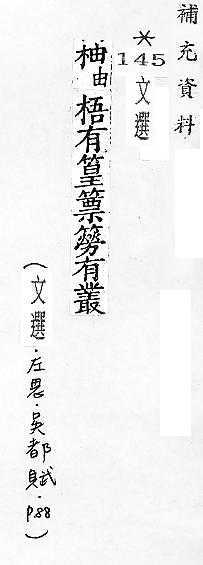 補充資料
*
145
文選
柚由梧有篁篻簩有叢
(文選·左思·吳都賦·P88)